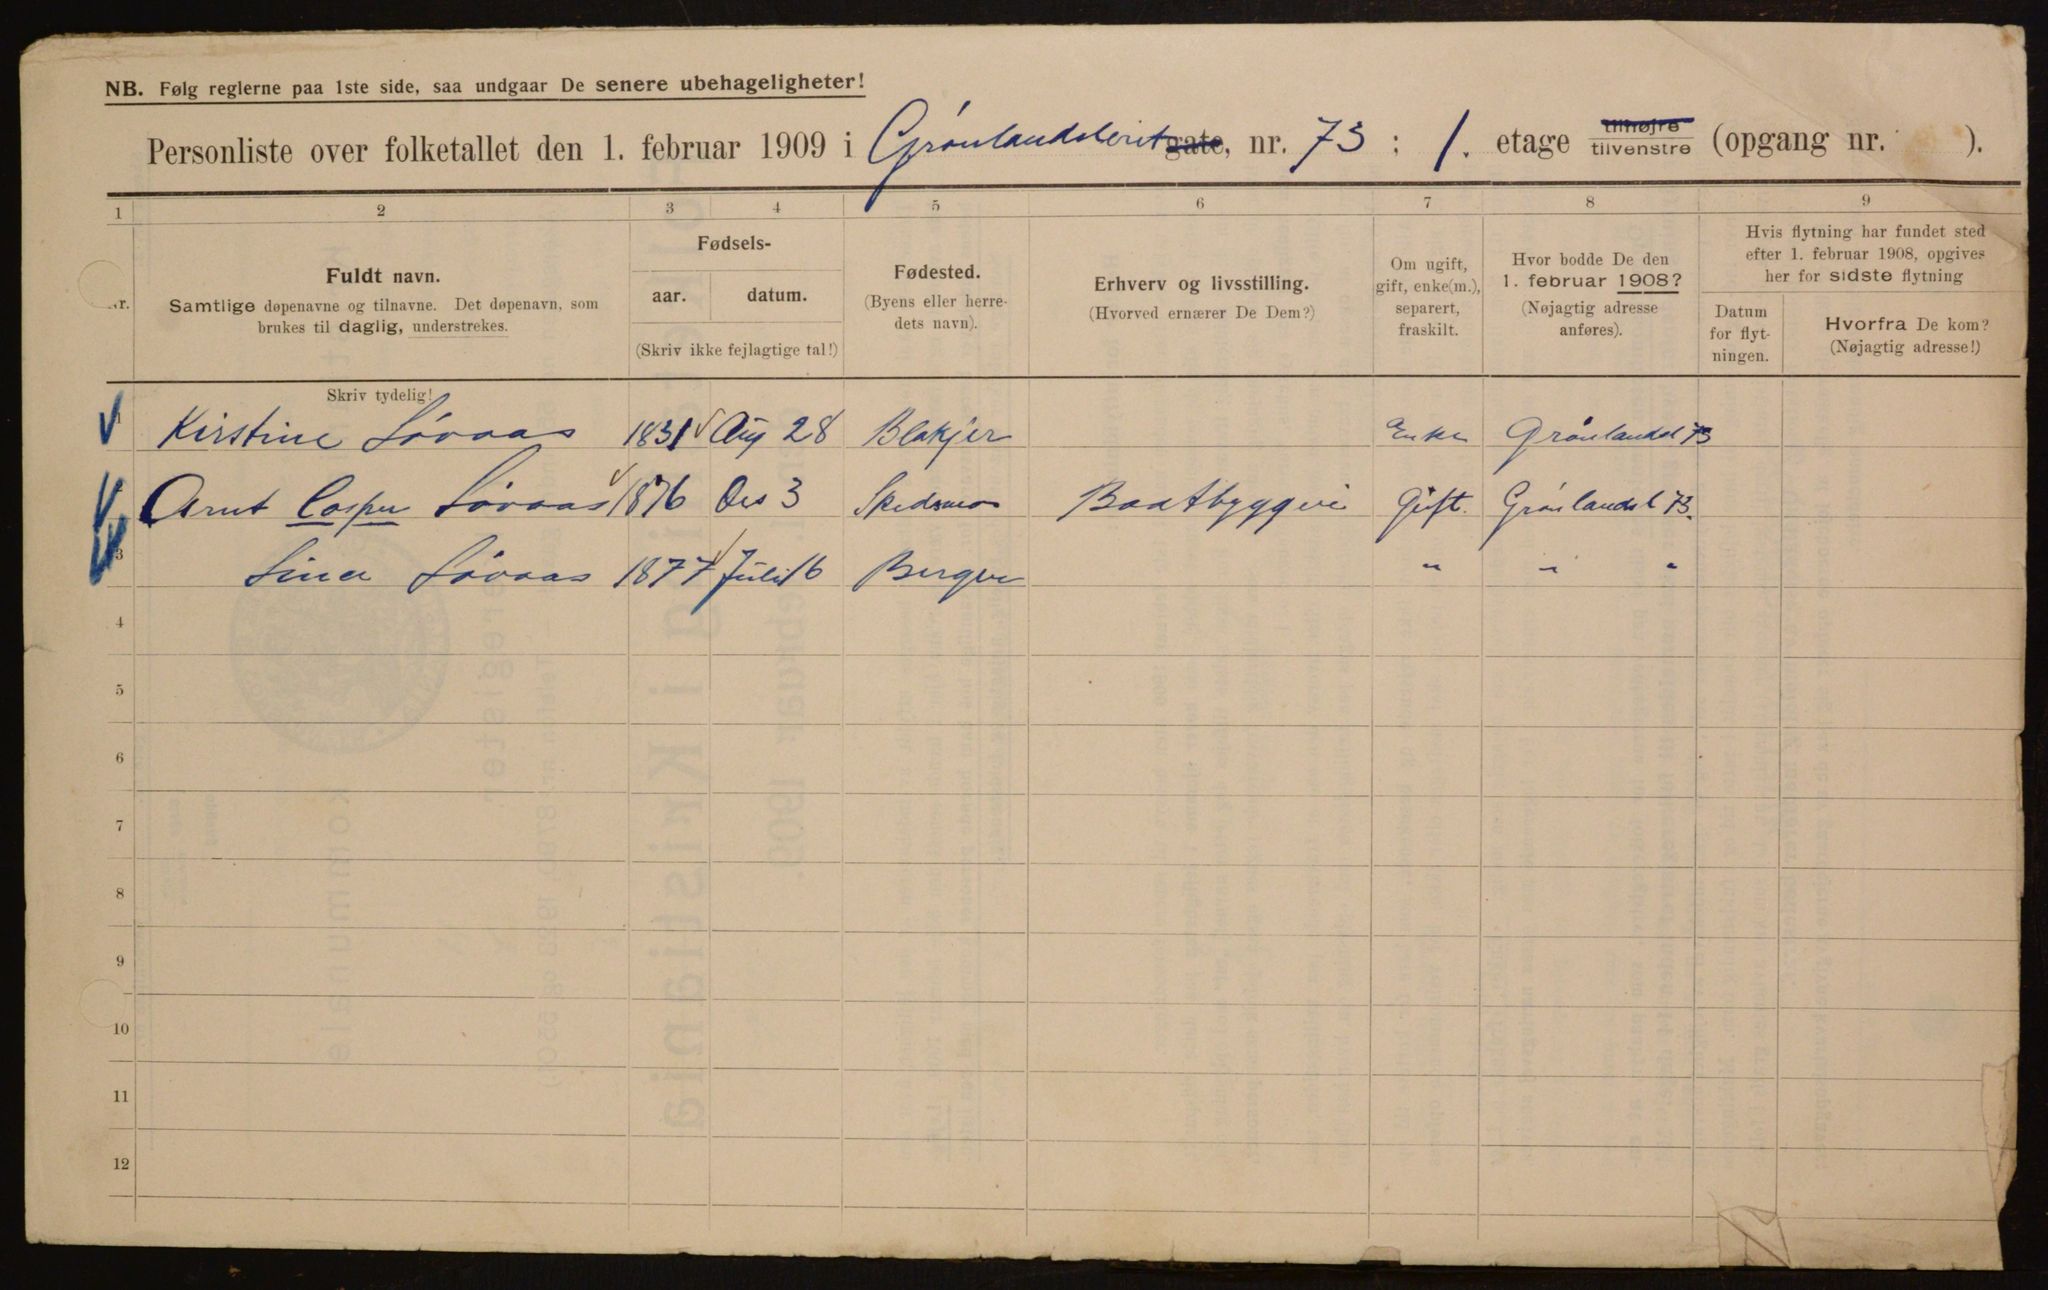 NB. Følg reglerne paa 1ste side, saa undgaar De senere ubehageligheter!
Personliste over folketallet den 1. februar 1909 i Grønlandsleret gate, nr. 73 ; 1. etage tilhøjre tilvenstre (opgang nr. ).
1 2 3 4 5 6 7 8 9
Nr.
Fuldt navn.
Samtlige døpenavne og tilnavne. Det døpenavn, som
brukes til daglig, understrekes.
Fødsels-
aar. datum.
(Skriv ikke fejlagtige tal!)
Fødested.
(Byens eller herre-
dets navn).
Erhverv og livsstilling.
(Hvorved ernærer De Dem?)
Om ugift,
gift, enke(m.),
separert,
fraskilt.
Hvor bodde De den
1. februar 1908?
(Nøjagtig adresse
anføres).
Hvis flytning har fundet sted
efter 1. februar 1908, opgives
her for sidste flytning
Datum
for flyt-
ningen.
Hvorfra De kom?
(Nøjagtig adresse!)
Skriv tydelig!
Kirstine Løvaas 1831 Aug 28 Blakjer Enke Grønlandsl 73
Arnt Casper Løvaas 1876 Des 3 Skedsmo Baatbyggeri Gift. Grønlandsl 73.
3 Lina Løvaas 1877 Juli 16 Bergen " " "
4
5
6
7
8
9
10
11
12